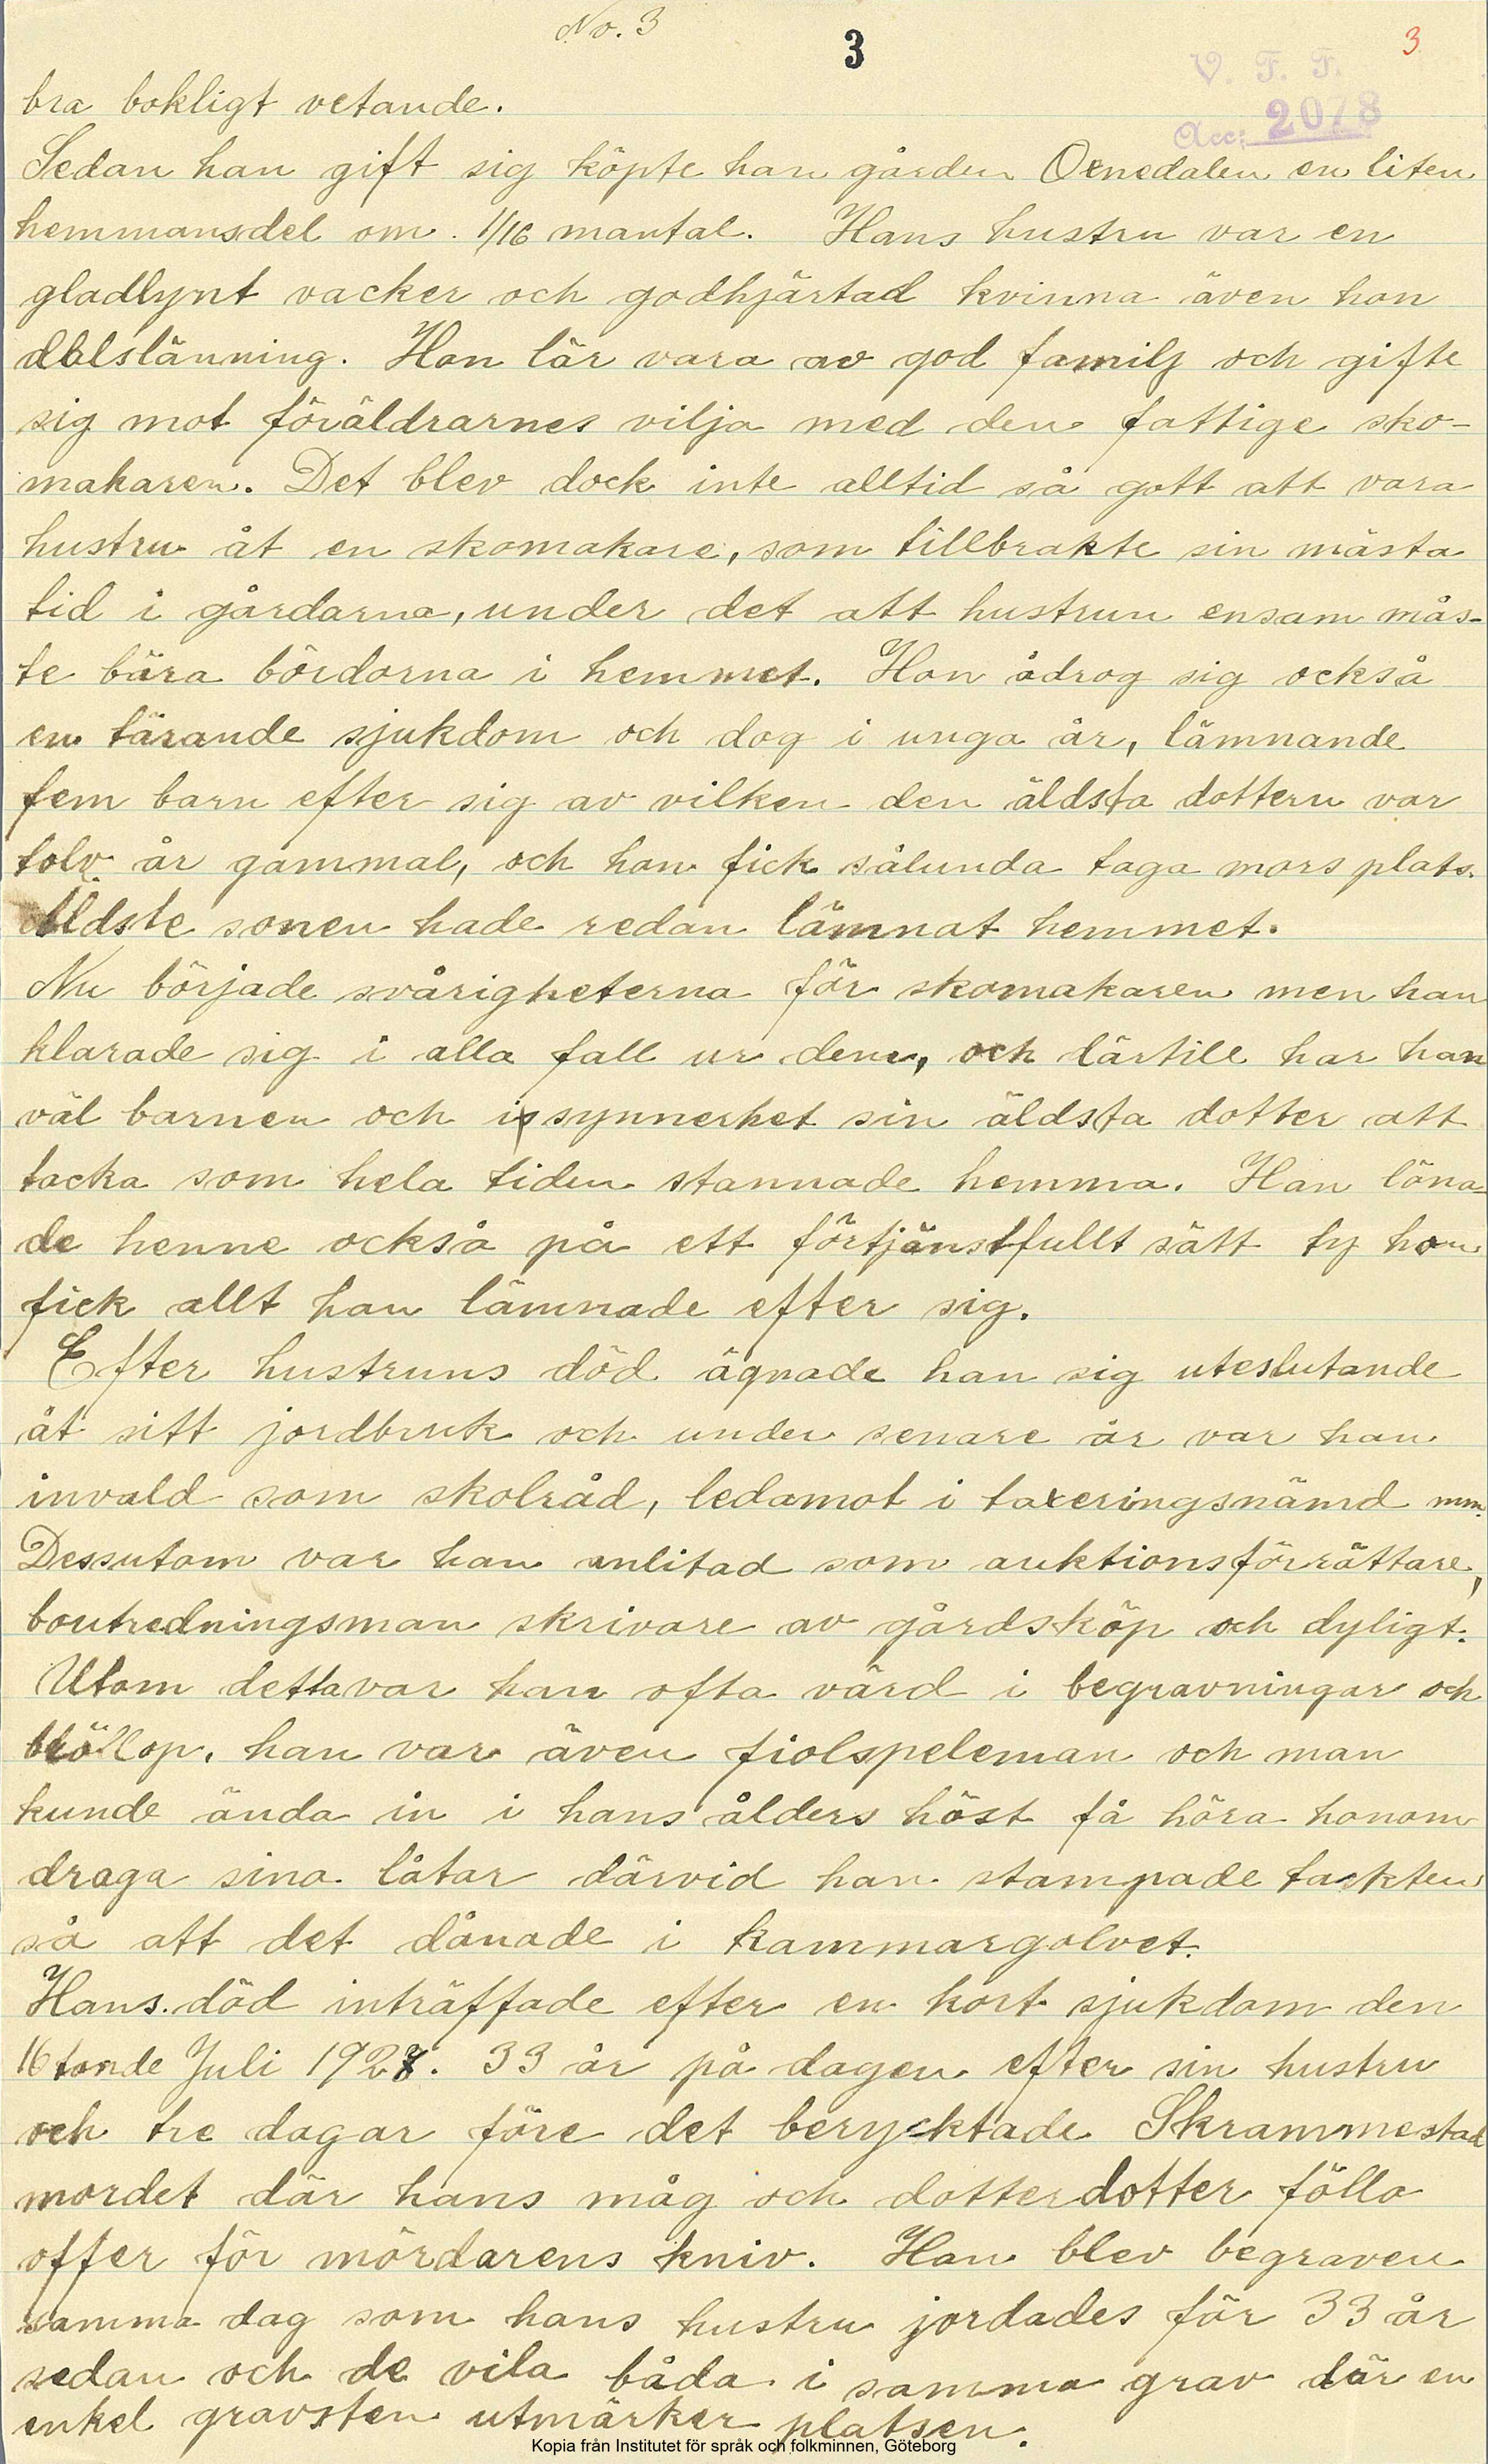 No. 3
3
3
V. F. F.
Acc: 2078
bra bokligt vetande.
Sedan han gift sig köpte han gården Ornedalen en liten
hemmansdel om 1/16 mantal. Hans hustru var en
gladlynt vacker och godhjärtad kvinna även hon
dalslänning. Hon lär vara av god familj och gifte
sig mot föräldrarnes vilja med den fattige sko-
makaren. Det blev dock inte alltid så gott att vara
hustru åt en skomakare, som tillbrakte sin mästa
tid i gårdarna, under det att hustrun ensam mås-
te bära bördorna i hemmet. Hon ådrog sig också
en tärande sjukdom och dog i unga år, lämnande
fem barn efter sig av vilken den äldsta dottern var
tolv år gammal, och hon fick sålunda taga mors plats.
Äldste sonen hade redan lämnat hemmet.
Nu började svårigheterna för skomakaren men han
klarade sig i alla fall ur dem, och därtill har han
väl barnen och i synnerhet sin äldsta dotter att
tacka som hela tiden stannade hemma. Han löna-
de henne också på ett förtjänstfullt sätt ty hon
fick allt han lämnade efter sig.
Efter hustruns död ägnade han sig uteslutande
åt sitt jordbruk och under senare år var han
invald som skolråd, ledamot i taxeringsnämd mm.
Dessutom var han anlitad som auktionsförrättare,
boutredningsman skrivare av gårdsköp och dyligt.
Utom detta var han ofta värd i begravningar och
bröllop. han var även fiolspeleman och man
kunde ända in i hans ålders höst få höra honom
draga sina låtar därvid han stampade taskten
så att det dånade i kammargolvet.
Hans död inträffade efter en kort sjukdom den
16 tonde Juli 1928. 33 år på dagen efter sin hustru
och tre dagar före det berycktade Skrammestad
mordet där hans måg och dotterdotter föllo
offer för mördarens kniv. Han blev begraven
samma dag som hans hustru jordades för 33 år
sedan och de vila båda i samma grav där en
enkel gravsten utmärker platsen.
Kopia från Institutet för språk och folkminnen, Göteborg